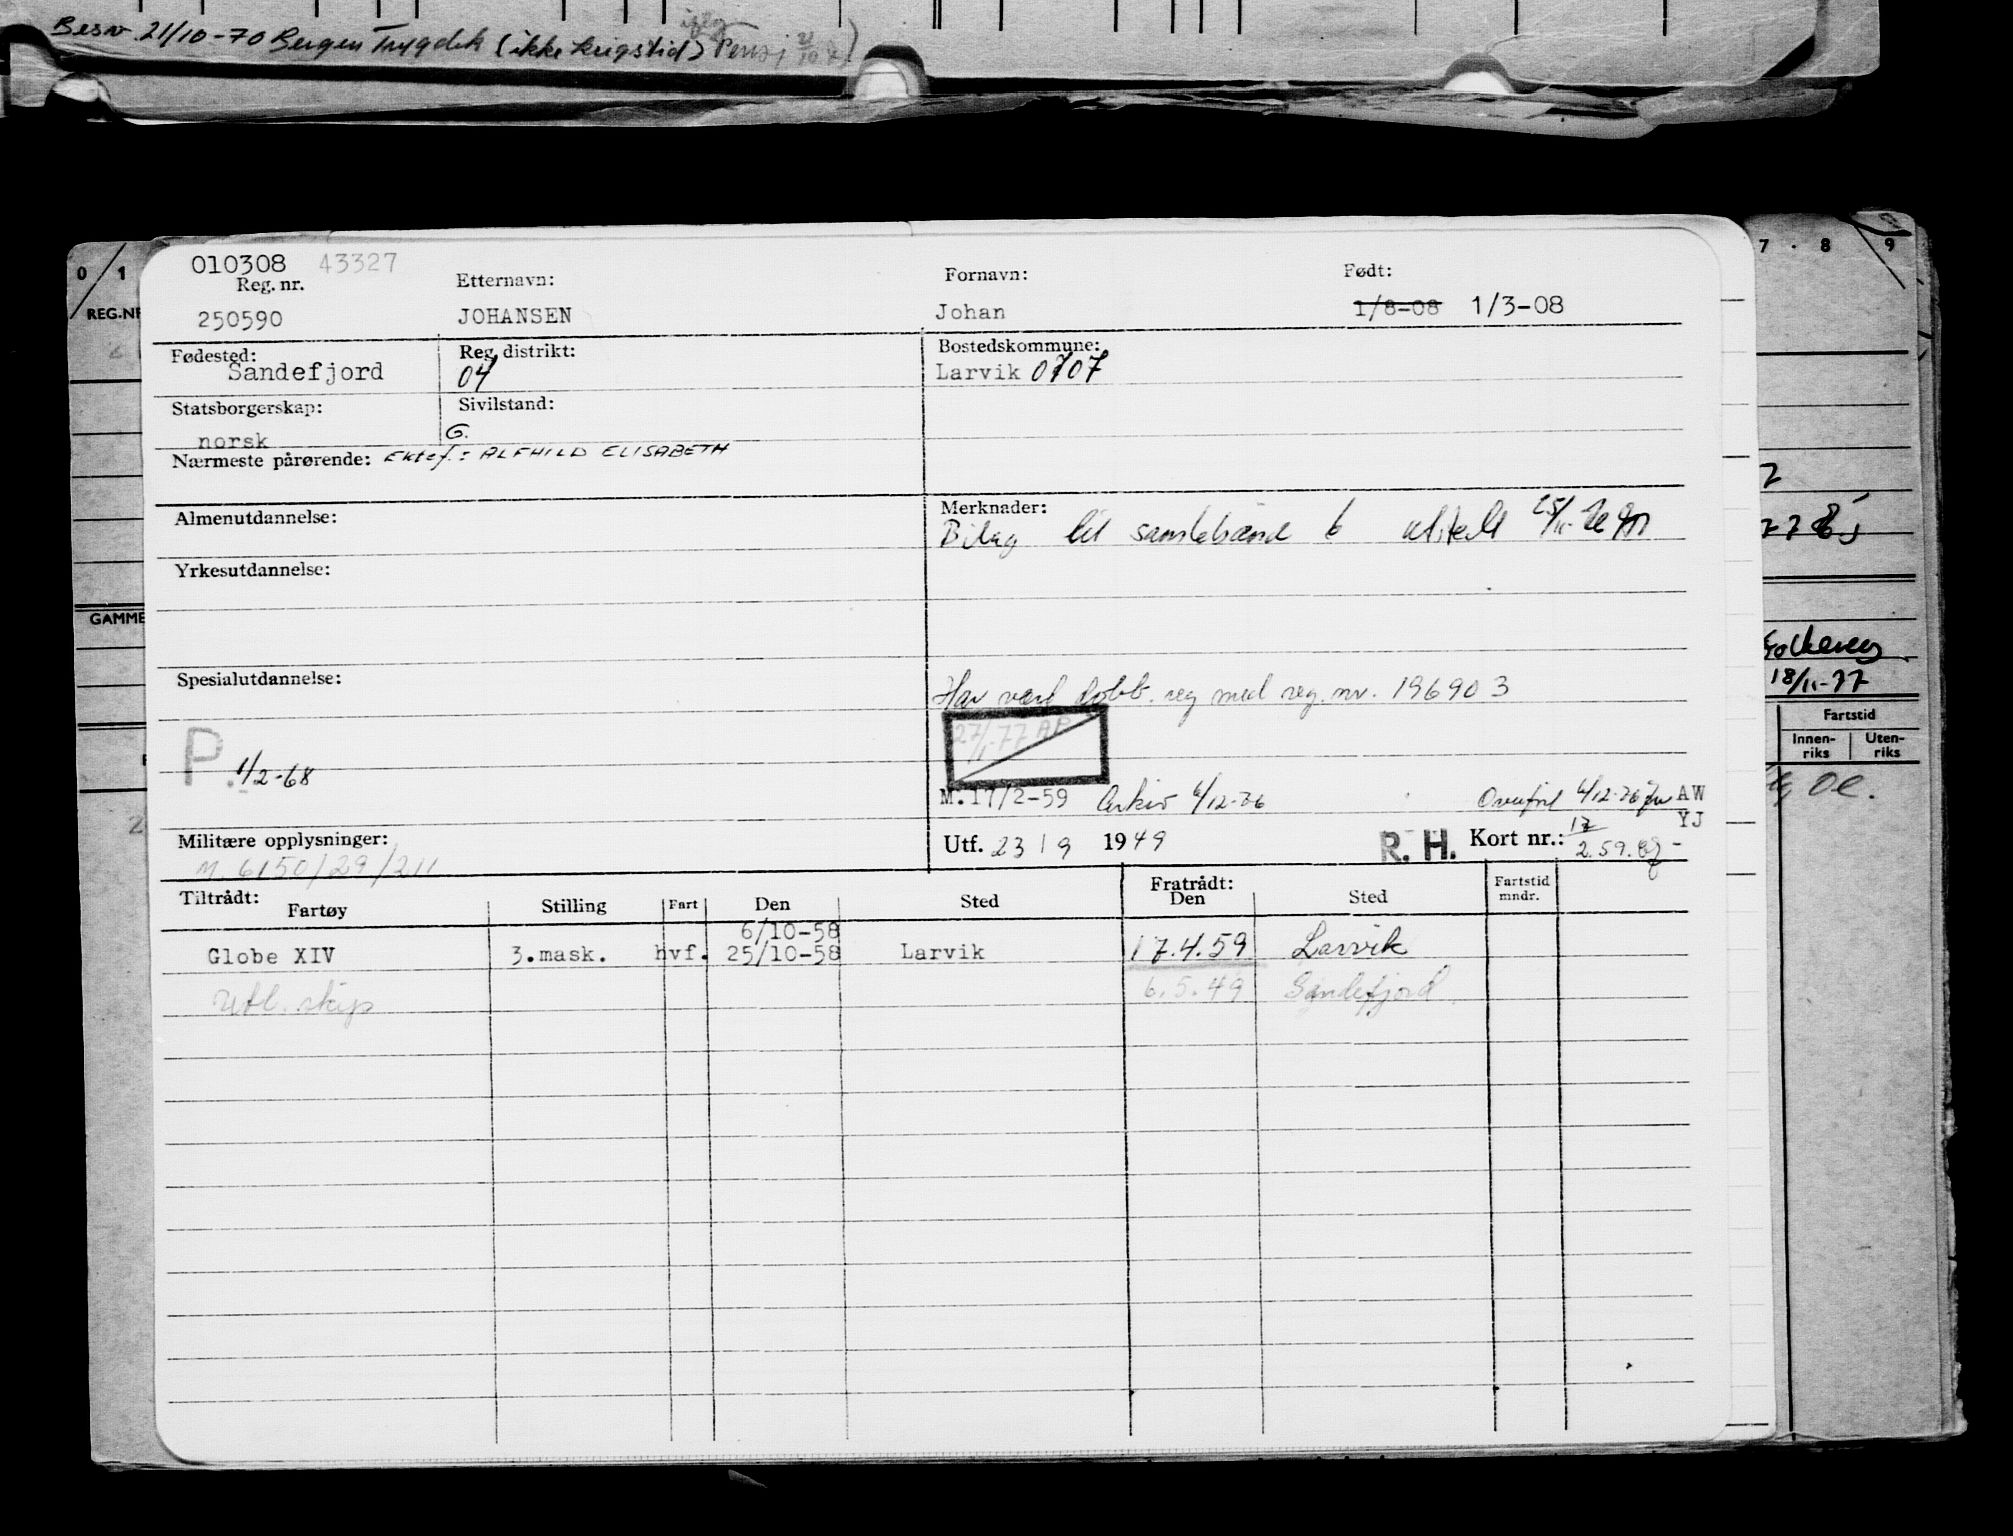 Besv. 21/10-70 Bergen Trygdek (ikke krigstid) Pensj
0 1 7 . 8 9
010308 43327
Reg. nr. Etternavn: Fornavn: Født:
250590 JOHANSEN Johan 1/8-08 1/3-08
REG.NR
Fødested: Reg. distrikt: Bostedskommune:
Sandefjord 04 Larvik 0707
Statsborgerskap: Sivilstand:
norsk G.
Nærmeste pårørende: Ektef.: ALFHILD ELISABETH
Almenutdannelse: Merknader:
Bilag til samlebånd 6
Yrkesutdannelse:
GAMME
Folkereg
18/11-77
Spesialutdannelse:
Har vært dobb. reg med reg. nr. 196903
Fartstid
Innen-riks Uten-riks
27/1-77 AP
P. 1/2-68
M.17/2-59 Arkiv 6/12-76 Overført 6/12-76 AW
YJ
Militære opplysninger: Utf. 23/9 1949 R. H. Kort nr.: 17
2.59.
M 6150/29/211
Tiltrådt: Fratrådt:
Fartøy Stilling Fart Den Sted Den Sted Fartstid mndr.
6/10-58
Globe XIV 3.mask. hvf. 25/10-58 Larvik 17.4.59 Larvik
Utl. skip 6.5.49 Sandefjord